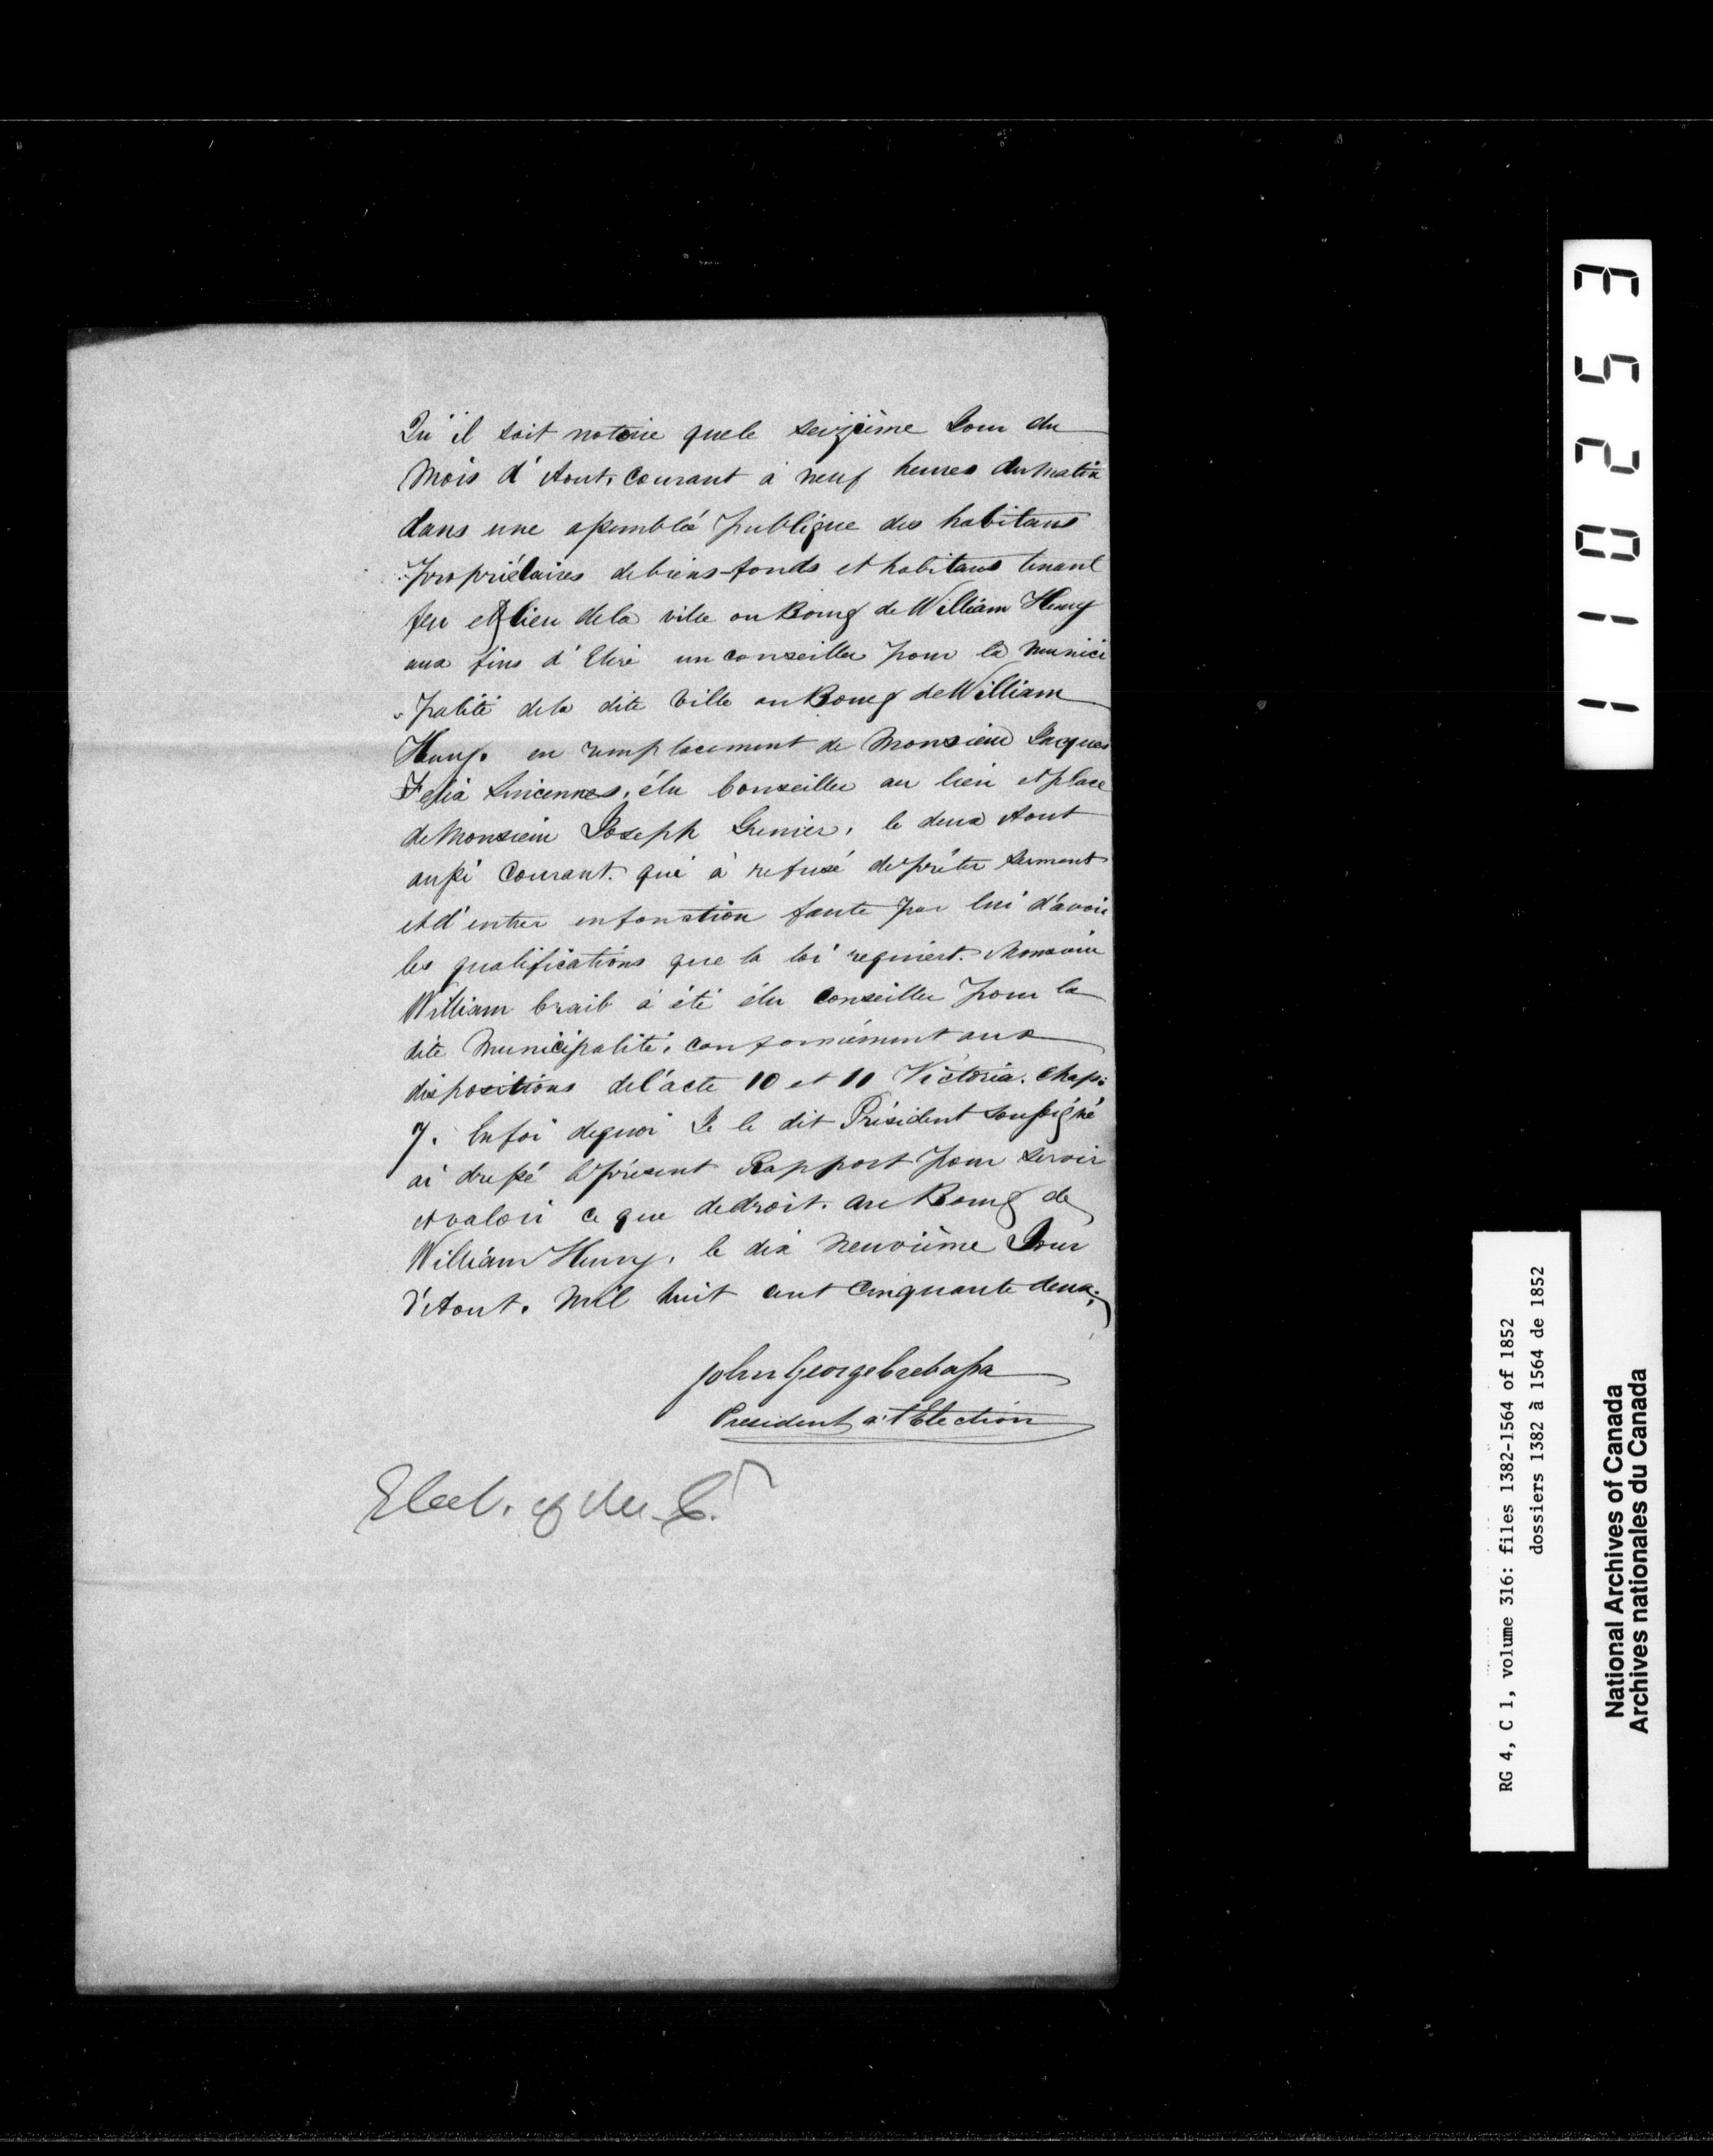 Qu'il soit notoire que le seizième Jour du
Mois d'Aout, Courant à neuf heures du matin
dans une assemblée publique des habitans
propriétaires de biens-fonds et habitans tenant
feu et lieu de la ville ou Bourg de William Henry
aux fins d'Elire un conseiller pour la Munici
"palité de la dite ville ou Bourg de William
Henry. en remplacement de Monsieur Jacques
Felix Sincennes, élu Conseiller au lieu et place
de Monsieur Joseph Grenier, le deux Aout
aussi Courant. qui à refusé de prêter serment
et d'entrer en fonction faute par lui d'avoir
les qualifications que la loi requiert. Monsieur
William Craib à été élu Conseiller pour la
dite Municipalité, conformément aux
dispositions de l'acte 10 et 11 Victoria. Chap:
7. En foi de quoi Je le dit Président soussigné
ai dressé le présent Rapport pour servir
et valoir ce que de droit. Au Bourg de
William Henry, le dix neuvième Jour
d'Aout. Mil huit cent Cinquante deux.
John George Crebassa
President à l'Election
Elect. of
110253
RG 4, C 1, volume 316: files 1382-1564 of 1852
dossiers 1382 à 1564 de 1852
National Archives of Canada
Archives nationales du Canada